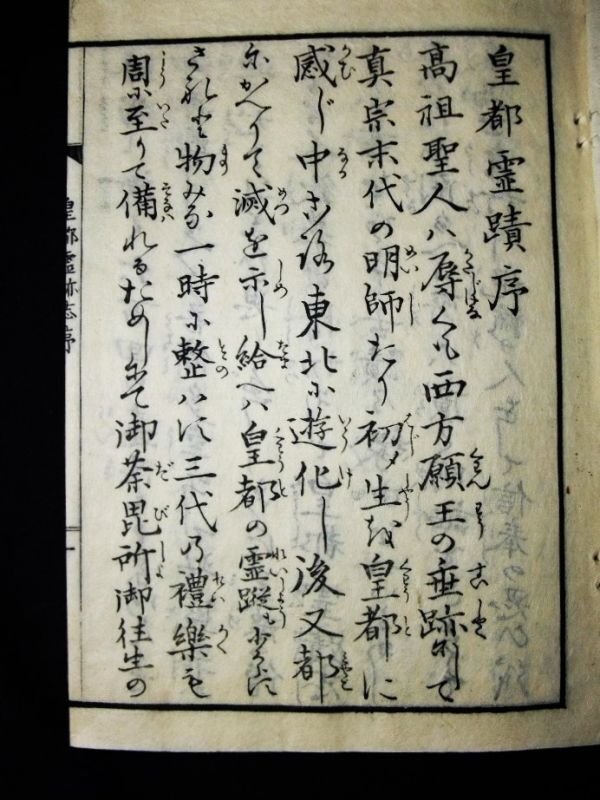 皇都霊蹟序
高祖聖人ハ辱くも西方願王の垂跡にて
真宗末代の明師たり初メ生を皇都に
感じ中ころ東北に遊化し後又都
にかへりて滅を示し給へハ皇都の霊蹤も少からす
されと物みな一時に整ハす三代乃禮樂も
周に至りて備れるためしにて御荼毘所御往生の
皇都霊跡志序